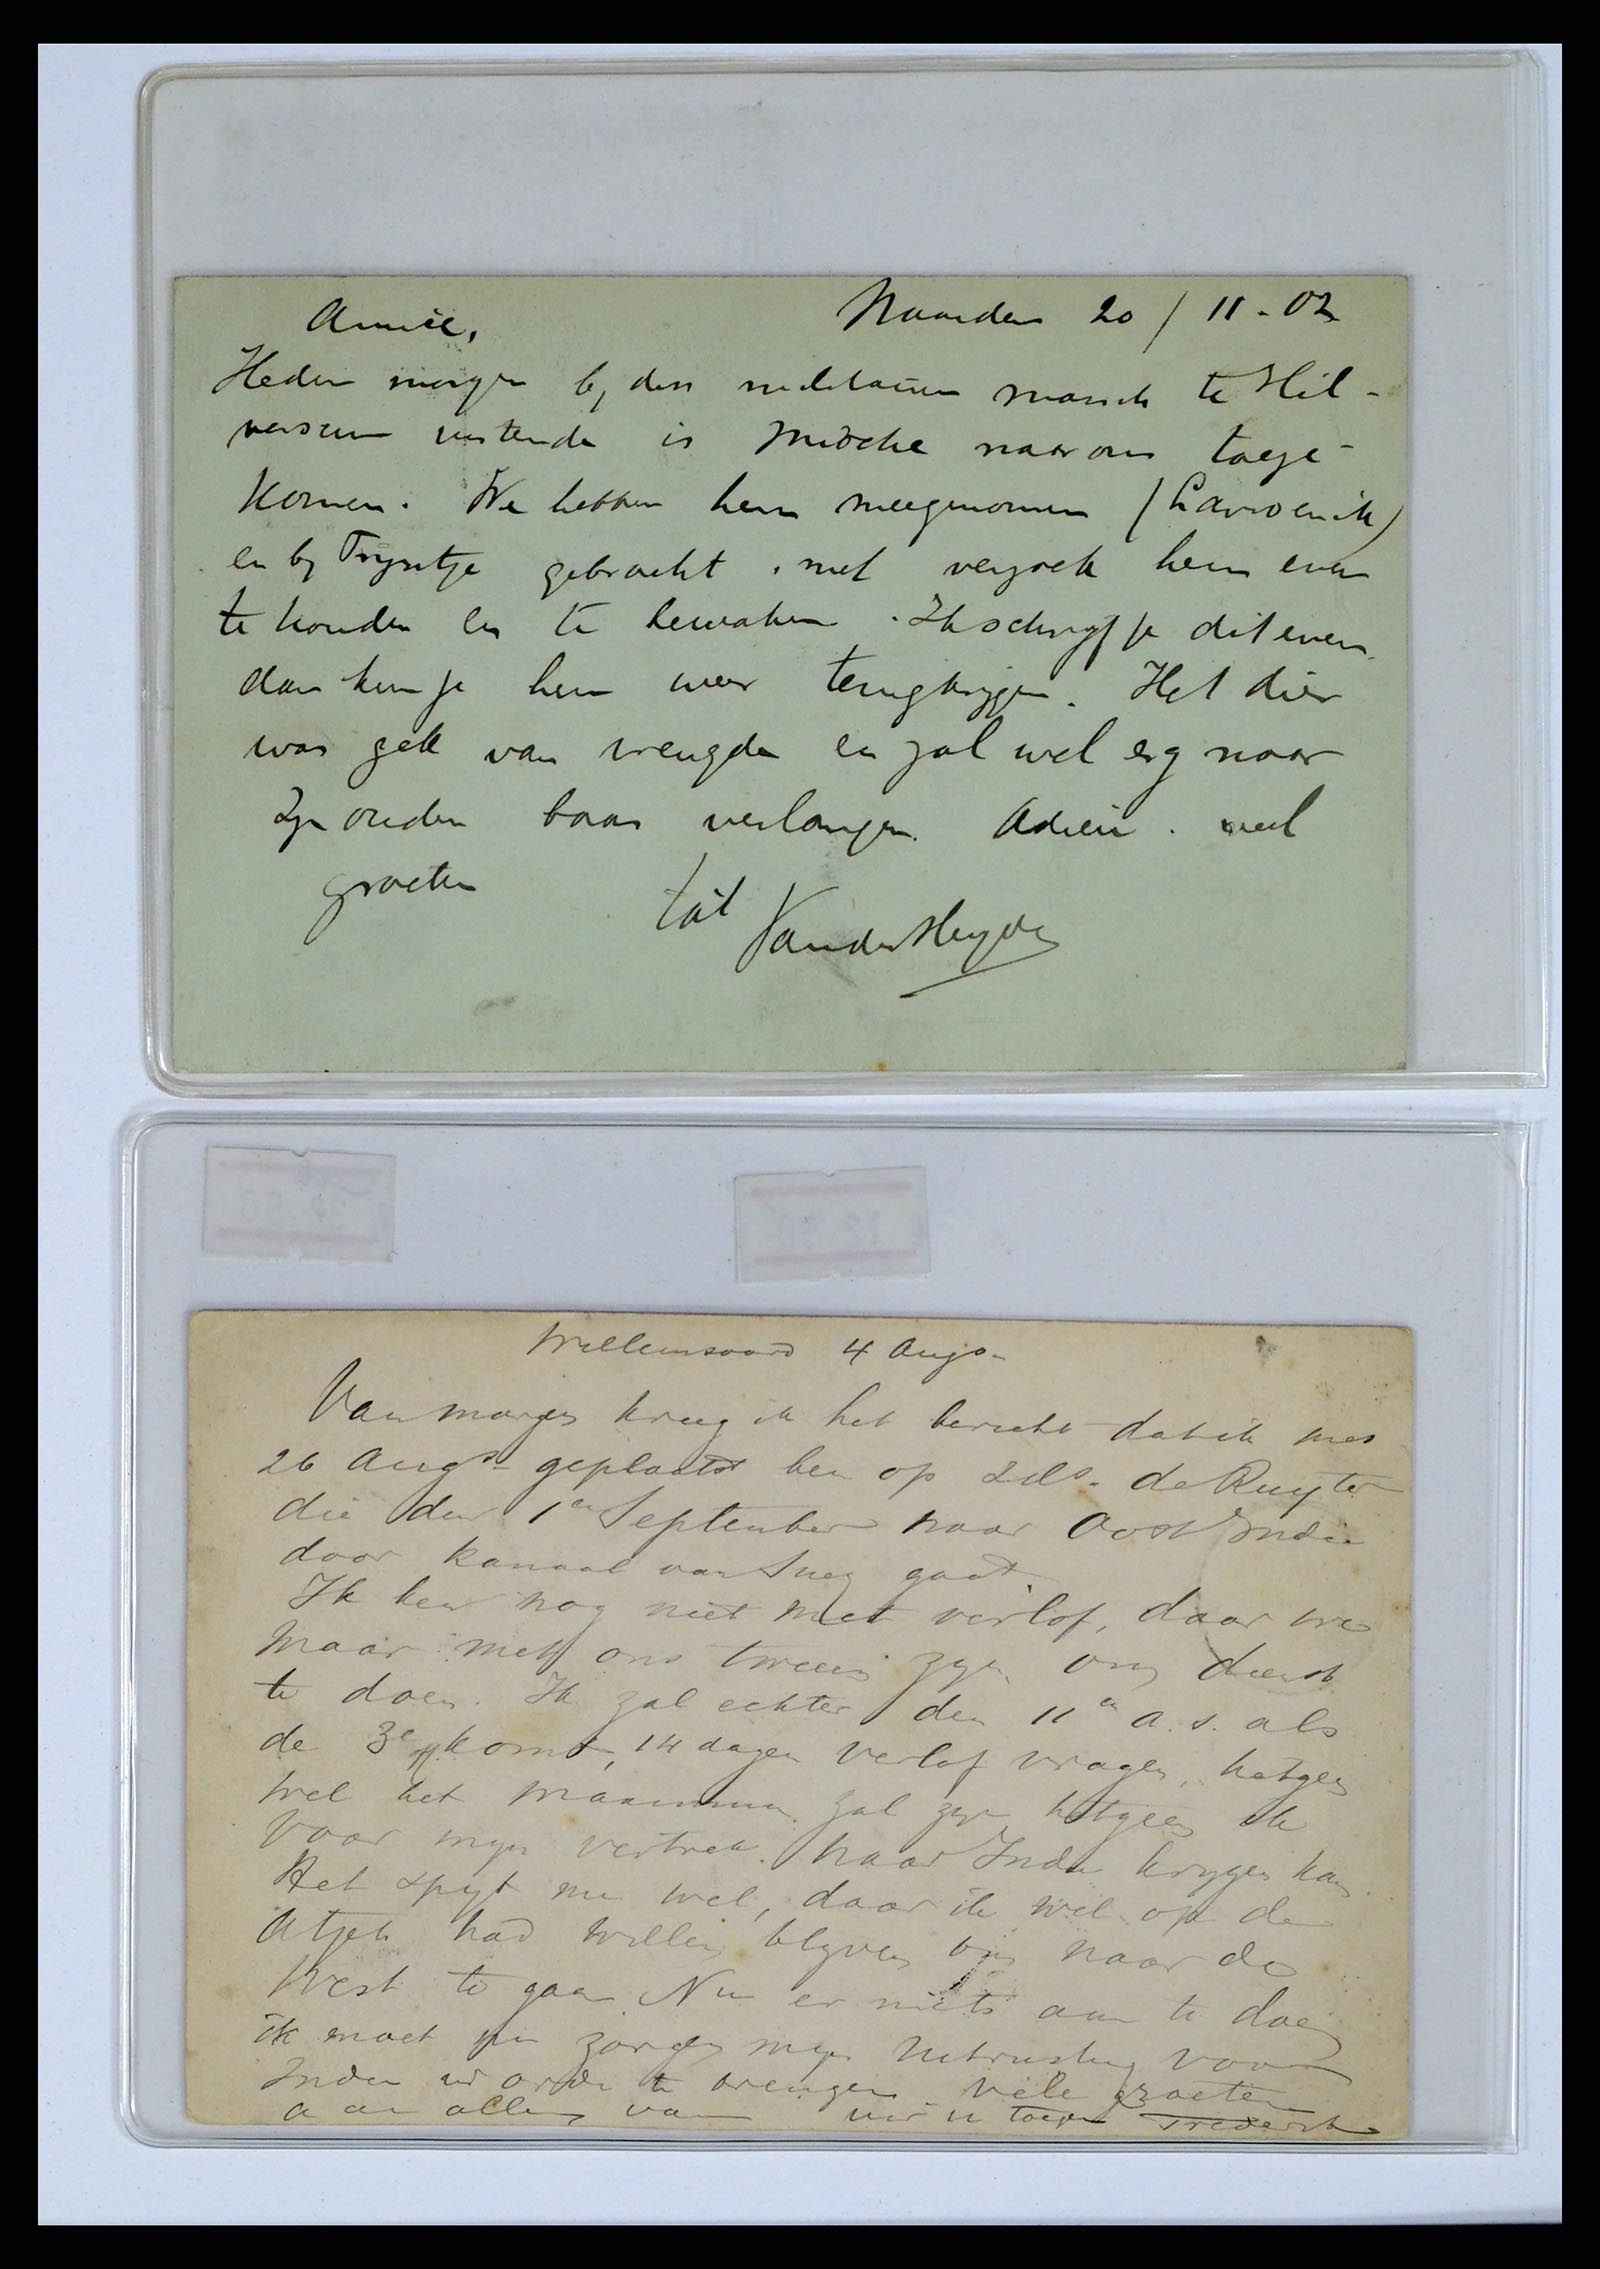 Amice,
Naarden 20/11-02
Heden morgen bij den militairen marsch te Hil-
versum rustende is naar ons toege-
komen. We hebben hem meegenomen
en bij Tryntje gebracht, met verzoek hem even
te houden en te bewaken. Ik schrijf je dit even
dan kun je hem weer terugkrijgen. Het dier
was gek van vreugde en zal wel erg naar
zijn ouden baas verlangen. Adieu. veel
groeten
tàt
Van der Heyden
Willemsoord 4 Augs
Van morgen kreeg ik het bericht dat ik met
26 Augs geplaatst ben op de Ruyter
die den 1en September naar Oost Indie
door kanaal van Suez gaat.
Ik ben nog niet met verlof, daar we
maar met ons tweeën zijn om dienst
te doen. Ik zal echter den 11en a.s. als
de 3e komt, 14 dagen verlof vragen, hetgeen
wel het maximum zal zijn hetgeen ik
voor mijn vertrek naar Indie krijgen kan.
Het spijt me wel, daar ik wel op de
Atjeh had willen blijven om naar de
West te gaan. Nu er niets aan te doen
ik moet nu zorgen mijn uitrusting voor
Indie in orde te brengen Vele groeten
aan allen van uw u toegen Frederik